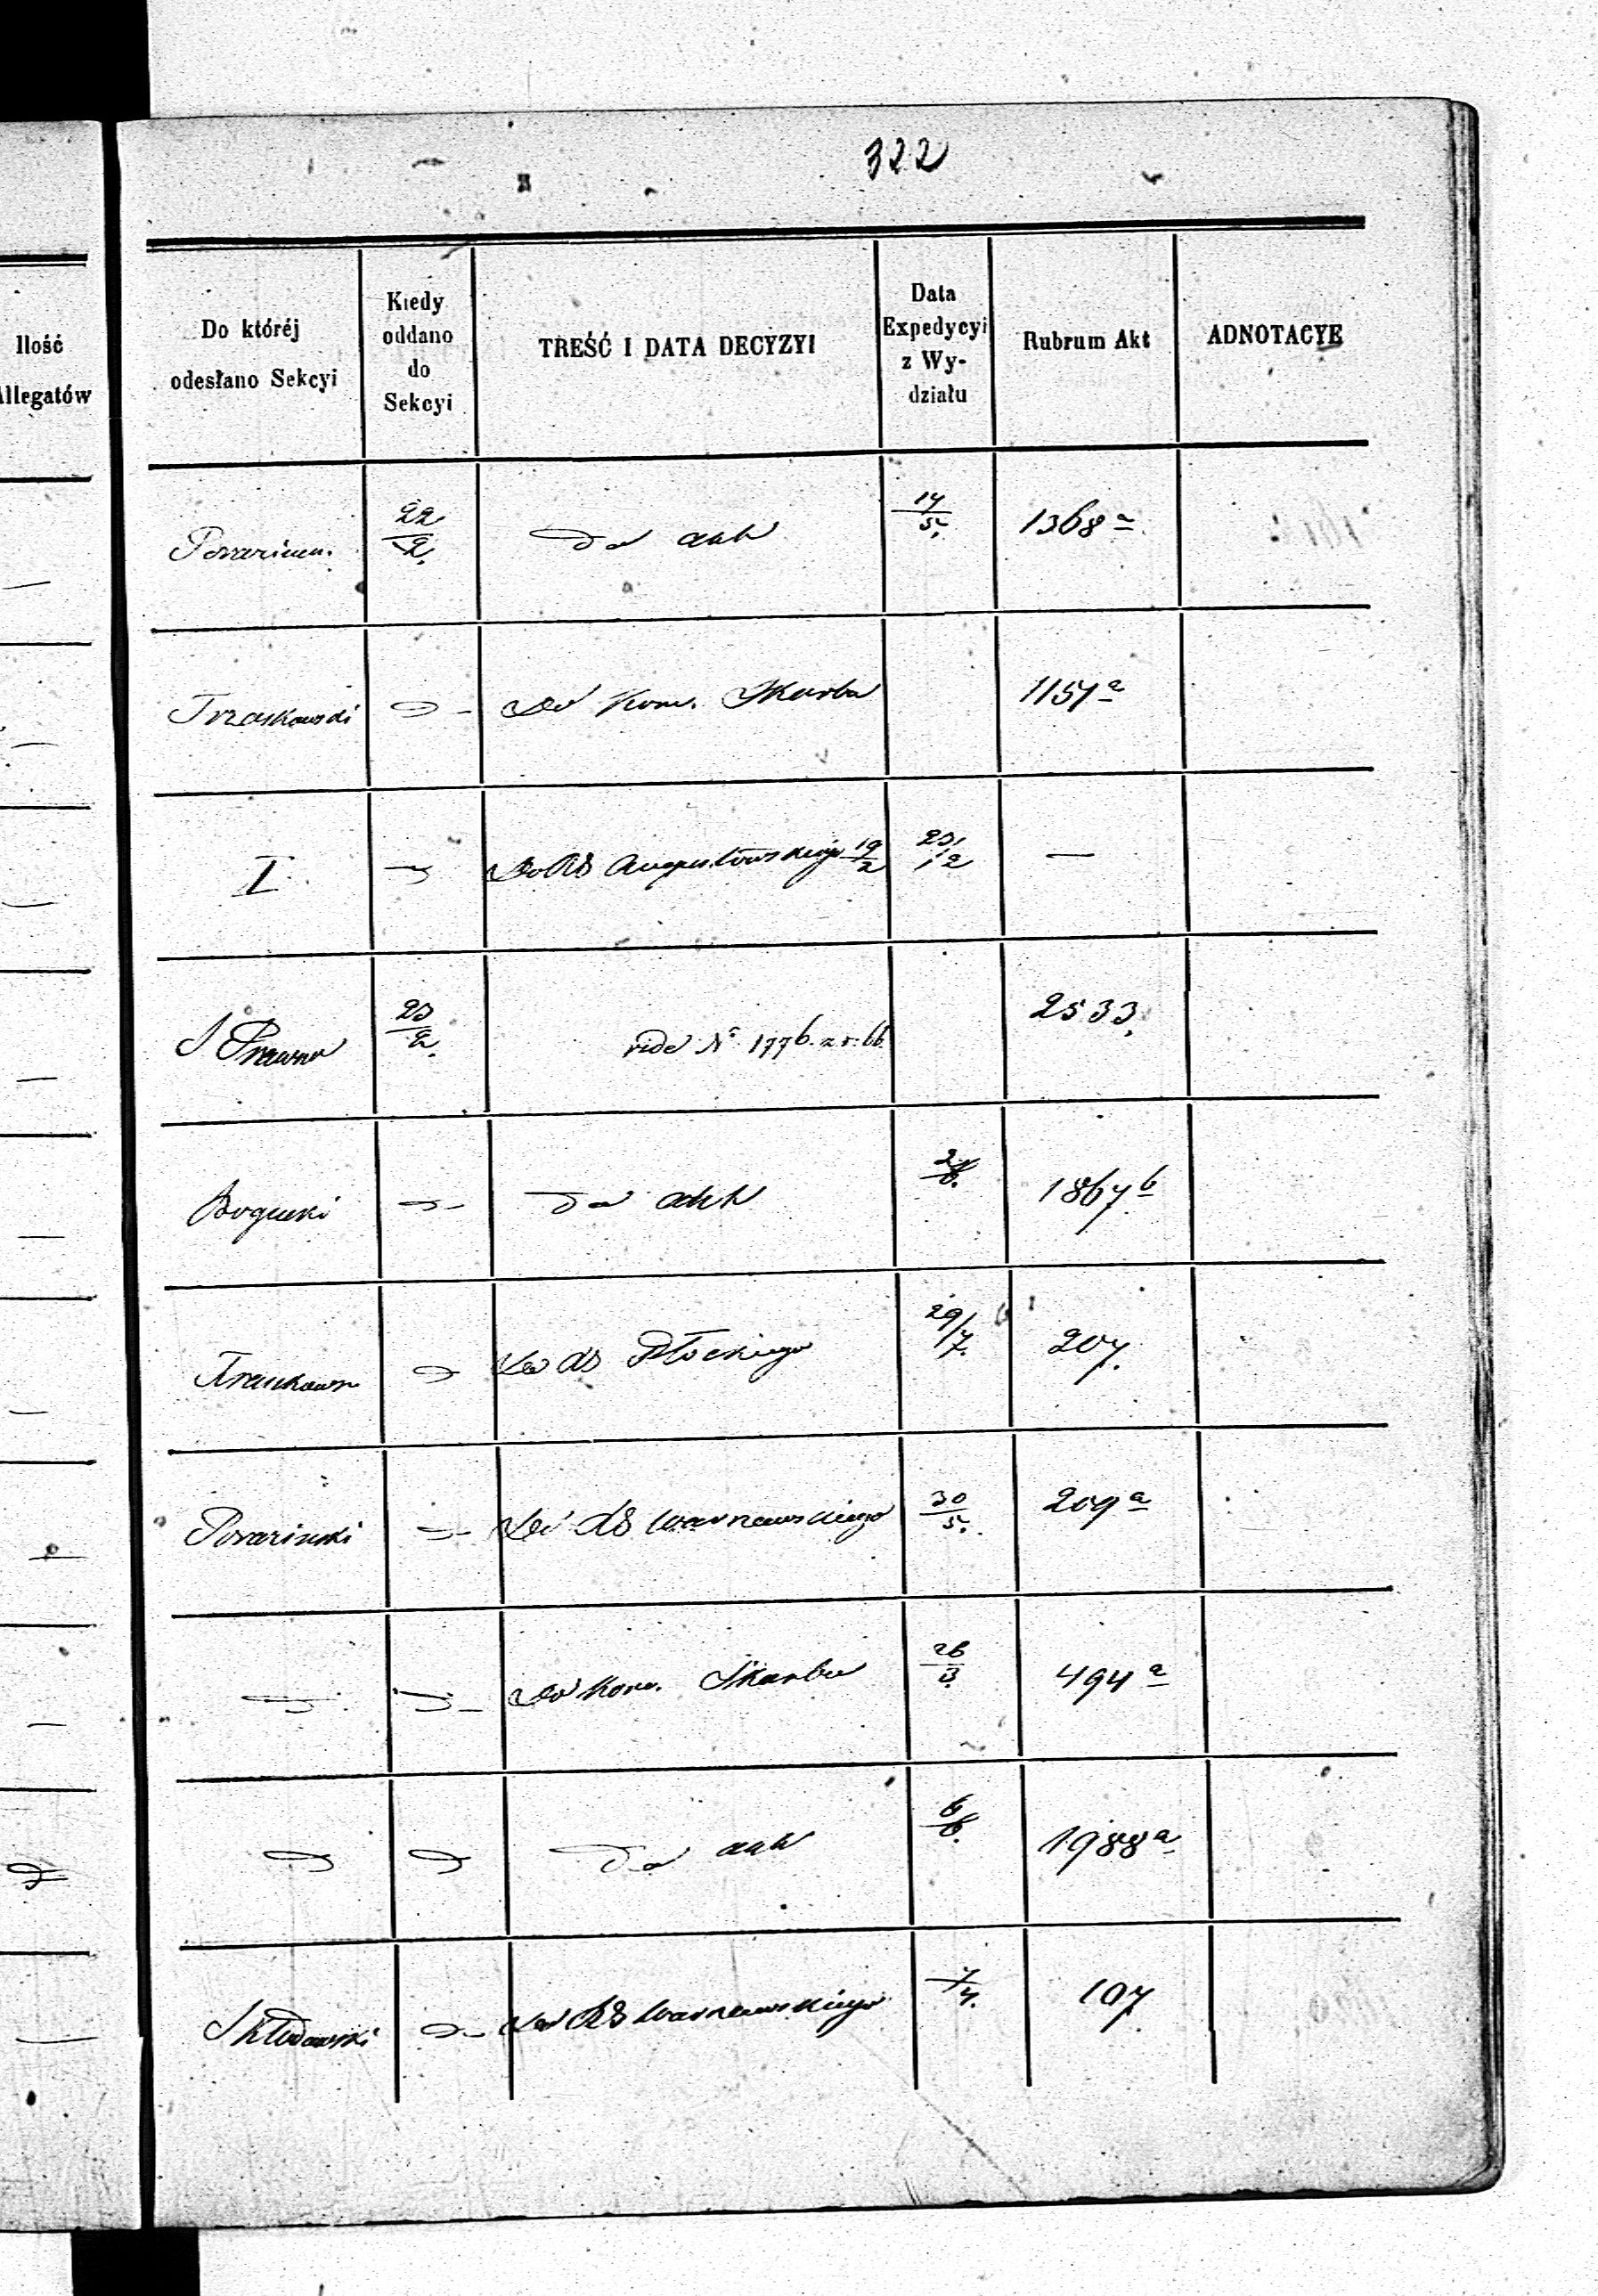 322
Ilość
Allegatów
Do któréj
odesłano Sekcyi
Kiedy
oddano
do
Sekcyi
TREŚĆ I DATA DECYZYI
Data
Expedycyi
z Wy-
działu
Rubrum Akt
ADNOTACYE
22/2. Do akt 14/5. 1368 a
Trzaskowski Do Kom. Skarbu 1151 a
I Augustowskiego 19/2 —
S Prawna 23/2. vide No 1776. z r. 66. 2533.
Bogucki Do akt 1867 b
Płockiego 29/7. 207.
Warszawskiego 30/5. 209 a
Do Kom. Skarbu 26/3. 494 a
Do akt 6/6. 1988 a
Skłodowski Warszawskiego 107